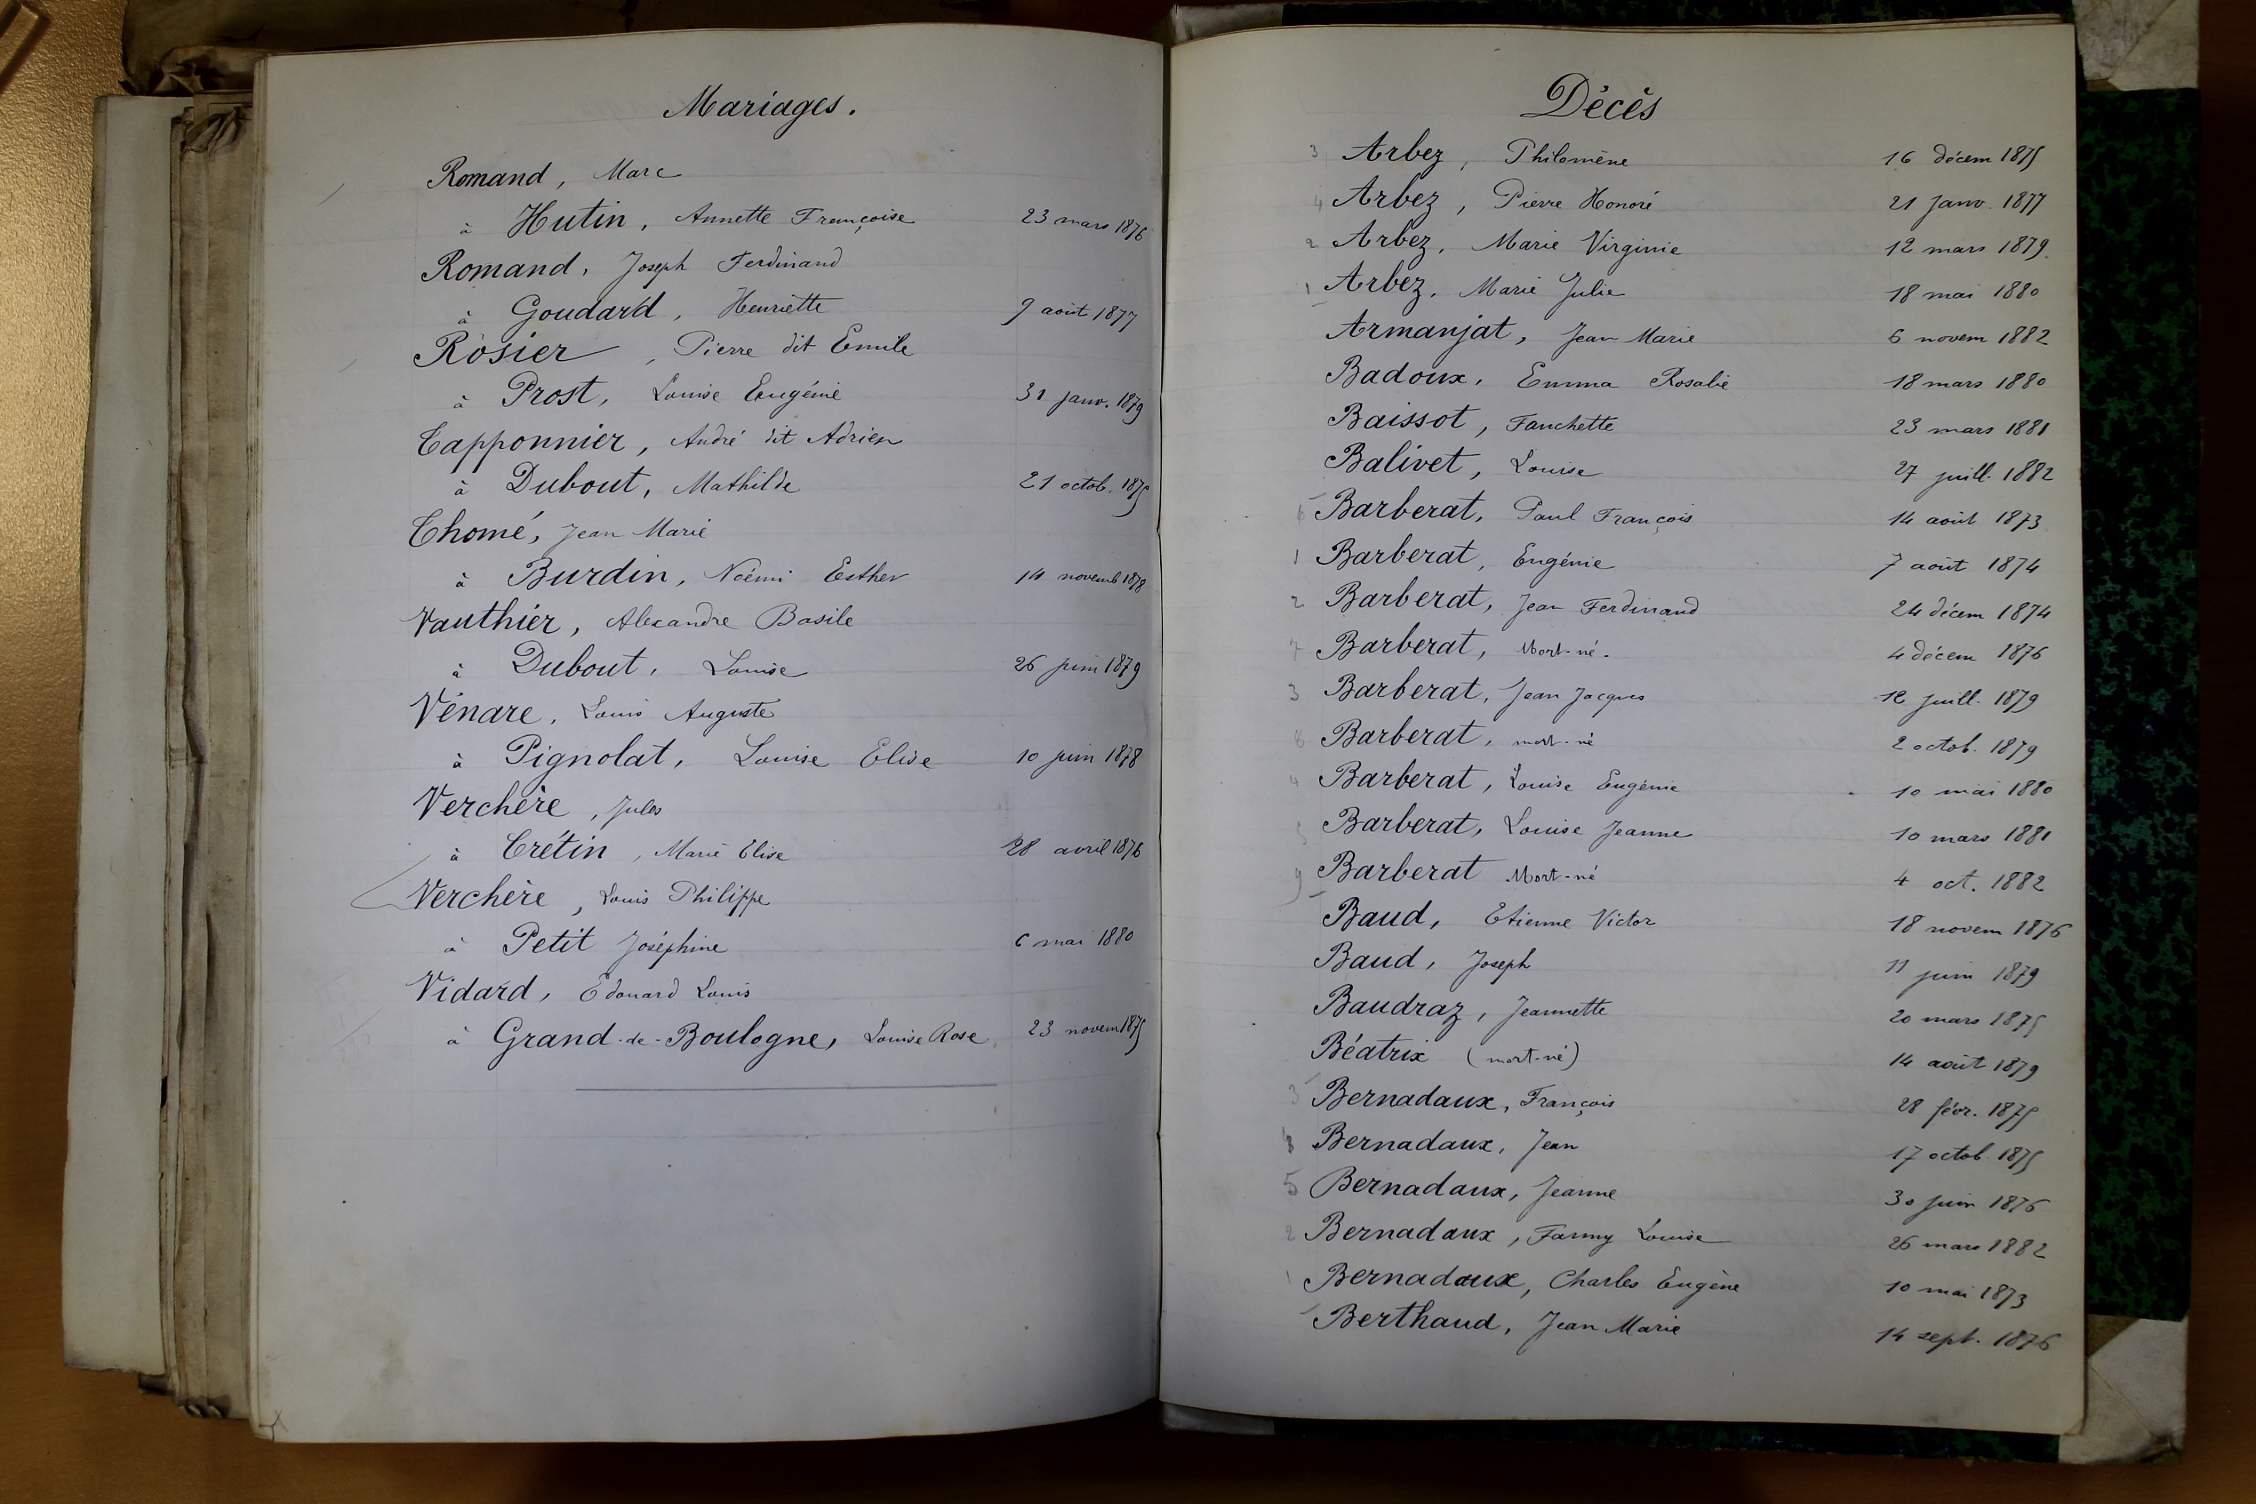 Mariages.
Romand, Marc
à Hutin, Annette Françoise 23 mars 1876
Romand, Joseph Ferdinand
à Goudard, Henriette 9 août 1877
Rosier, Pierre dit Emile
à Prost, Louise Eugénie 31 janv. 1879
Tapponnier, André dit Adrien
à Dubout, Mathilde 21 octob. 1875
Thomé, Jean Marie
à Burdin, Noémi Esther 14 novemb 1878
Vauthier, Alexandre Basile
à Dubout, Louise 26 juin 1879
Vénare, Louis Auguste
à Pignolat, Louise Elise 10 juin 1878
Verchère, Jules
à Crétin, Marie Elise 28 avril 1876
Verchère, Louis Philippe
à Petit Joséphine 6 mai 1880
Vidard, Edouard Louis
à Grand-de-Boulogne, Louise Rose 23 novem 1875
Décès
3 Arbez, Philomène 16 décem 1875
4 Arbez, Pierre Honoré 21 janv. 1877
2 Arbez, Marie Virginie 12 mars 1879.
1 Arbez, Marie Julie 18 mai 1880
Armanjat, Jean Marie 6 novem 1882
Badoux, Emma Rosalie 18 mars 1880
Baissot, Fanchette 23 mars 1881
Balivet, Louise 27 juill. 1882
6 Barberat, Paul François 14 août 1873
1 Barberat, Eugénie 7 août 1874
2 Barberat, Jean Ferdinand 24 décem 1874
7 Barberat, Mort-né. 4 décem 1876
3 Barberat, Jean Jacques 12 juill. 1879
8 Barberat, mort-né 2 octob. 1879
4 Barberat, Louise Eugénie 10 mai 1880
5 Barberat, Louise Jeanne 10 mars 1881
9 Barberat Mort-né 4 oct. 1882
Baud, Etienne Victor 18 novem 1876
Baud, Joseph 11 juin 1879
Baudraz, Jeannette 20 mars 1875
Béatrix (mort-né) 14 août 1879
3 Bernadaux, François 28 févr. 1875
Bernadaux, Jean 17 octob 1875
5 Bernadaux, Jeanne 30 juin 1876
2 Bernadaux, Fanny Louise 26 mars 1882
1 Bernadaux, Charles Eugène 10 mai 1873
Berthaud, Jean Marie 14 sept. 1876